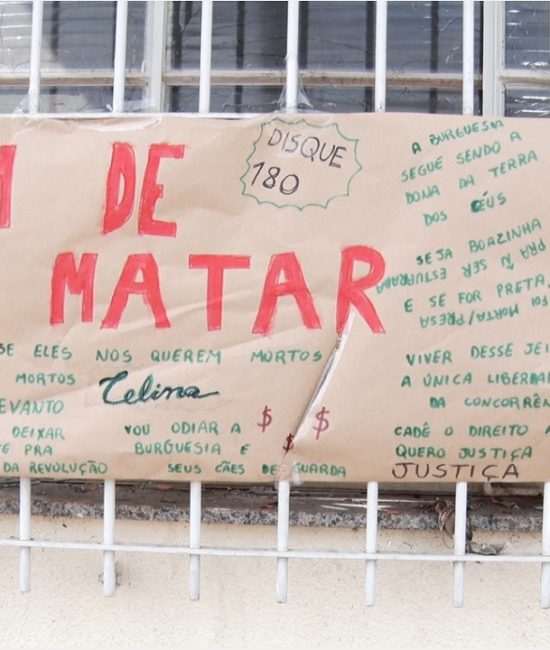 DE
MATAR
DISQUE
180
A BURGUESIA
SEGUE SENDO A
DONA DA TERRA
DOS CÉUS
SEJA BOAZINHA
PRA Ñ SER ESTUPRADA
E SE FOR PRETA
FOI MORTA/PRESA
SE ELES NOS QUEREM MORTOS
MORTOS
Celina
EVANTO
DEIXAR
E PRA
DA REVOLUÇÃO
VOU ODIAR A $ $
BURGUESIA E $
SEUS CÃES DE GUARDA
VIVER DESSE JEI
A ÚNICA LIBERDA
DA CONCORRÊN
CADÊ O DIREITO A
QUERO JUSTIÇA
JUSTIÇA